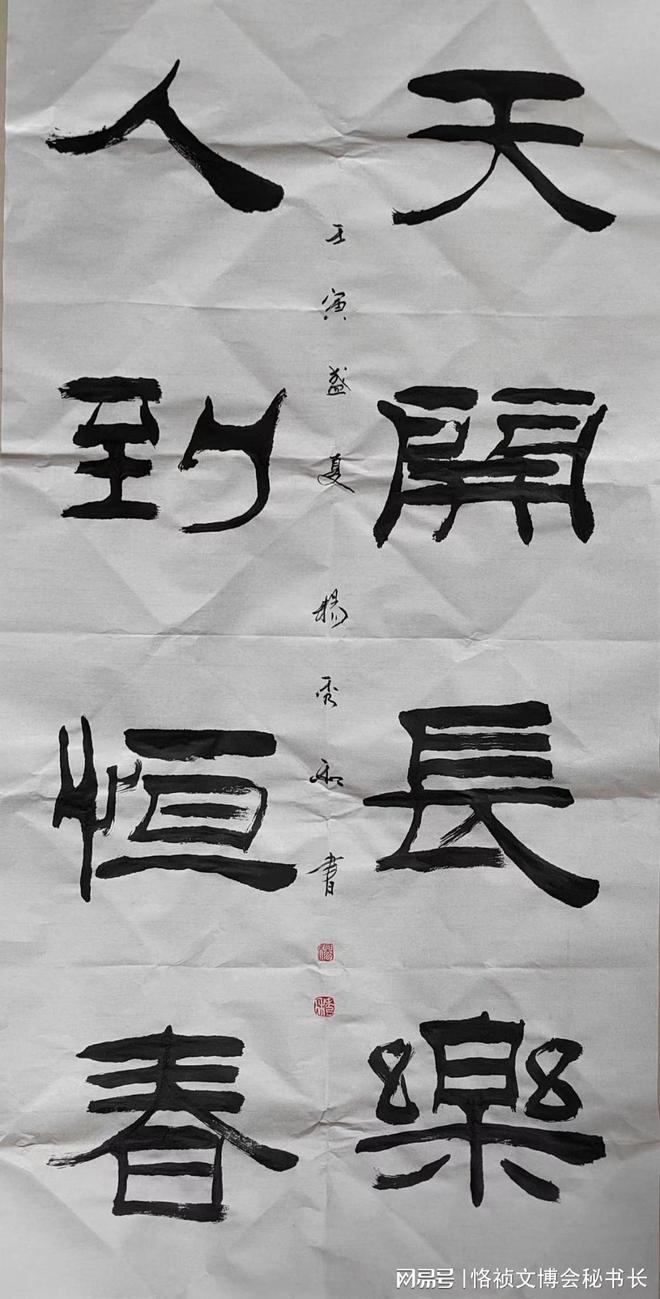 天開長樂
人到恒春
壬寅盛夏楊秀和書
网易号 | 恪祯文博会秘书长